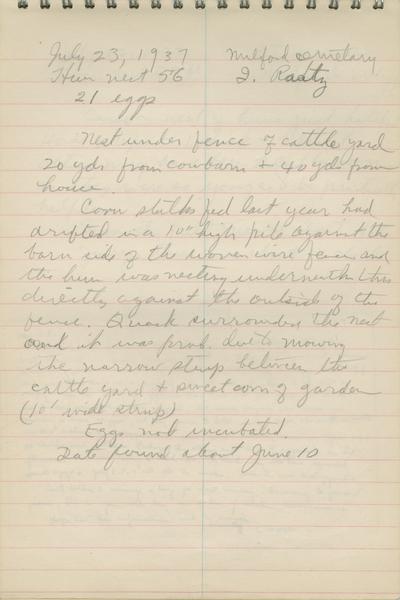 July 23, 1937 Milford cemetary
Hun nest 56 I. Raatz
21 eggs
Nest under fence of cattle yard
20 yds from cowbarn + 40 yds from
house.
Corn stalks fed last year had
drifted in a 10" high pile against the
barn side of the woven wire fence and
the hun was nesting underneath this
directly against the outside of the
fence. Quack surrounded the nest
and it was prob. due to mowing
the narrow strip between the
cattle yard + sweet corn of garden
(10' wide strip)
Eggs not incubated.
Date found about June 10